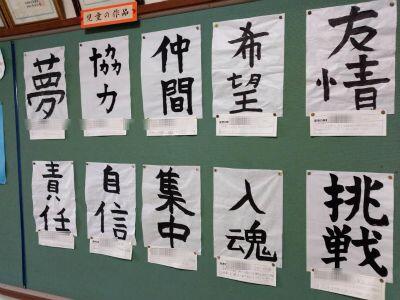 児童の作品
友情
希望
仲間
協力
夢
挑戦
入魂
集中
自信
責任